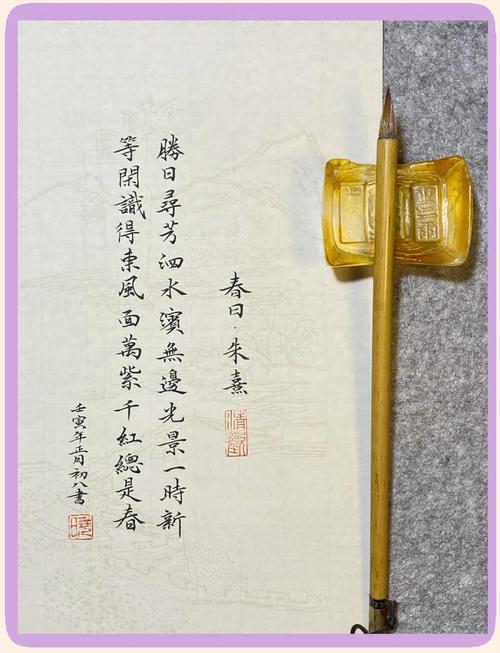 春日·朱熹
清歡
勝日尋芳泗水濱無邊光景一時新
等閑識得東風面萬紫千紅總是春
壬寅年正月初八書